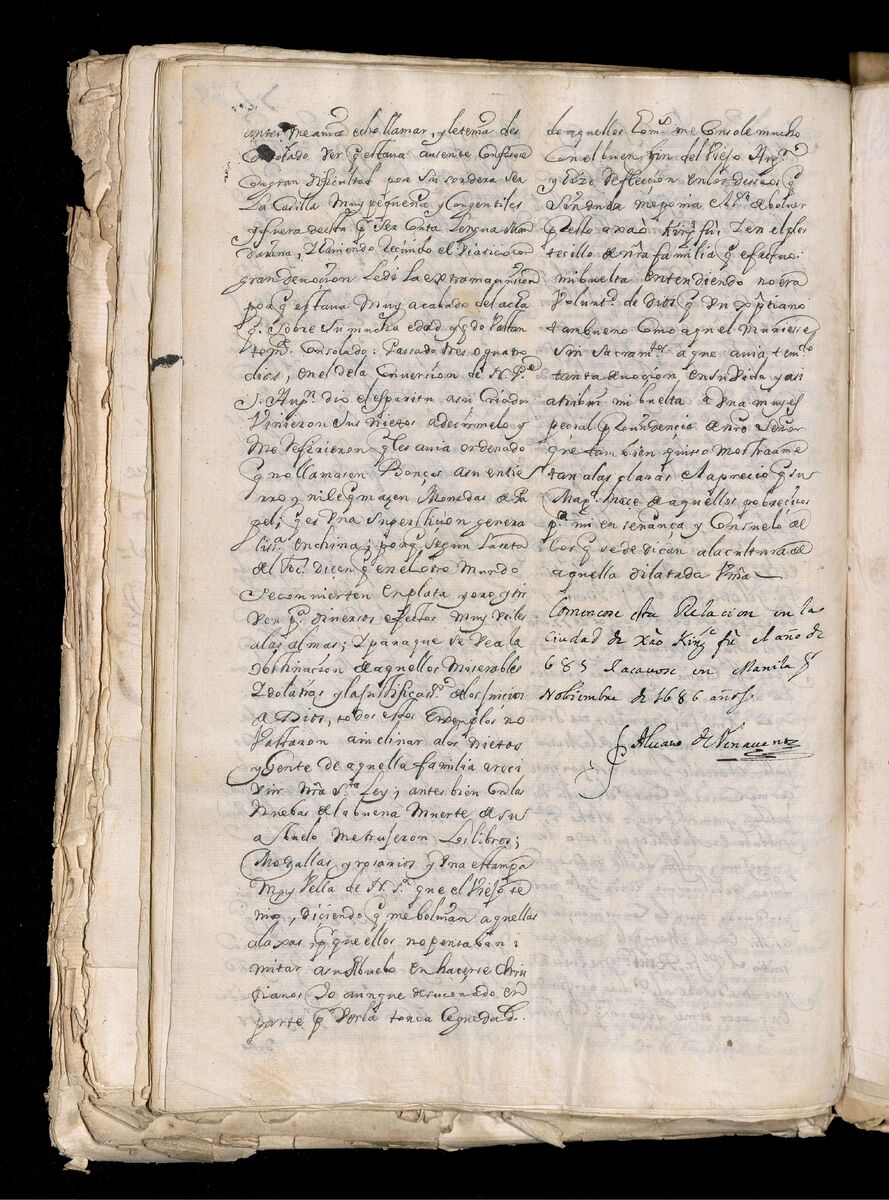 antes me avia echo llamar, y le tenia des
consolado ver q̃ estava ausente confesse
con gran dificultad por su sordera ser
la casilla muy pequeña y con gentiles
y fuera desta q̃ ser con la lengua Man
darina, y haviendo recivido el viatico con
gran devocion le di la extremauncion
porq̃ estava muy acabado del acha
q̃ sobre su mucha edad y q̃do bastan
temte consolado: Passado tres o quatro
dias, en el de la Conversion de N. P.e
S. Augn. dio el espiritu a su Criador
Vinieron sus nietos a decirmelo y
me refirieron q̃ les avia ordenado
q̃ no llamasen Bonços a su entie
rro y ni le q̃masen Monedas de pa
pel, q̃ es una supersticion genera
liss.a en china; porq̃ segun la seta
del Foe, dicen q̃ en el otro Mundo
se convierten en plata y oro
q.a diversos efectos muy utiles
a las almas; Y para que se vea la
obstinacion de aquellos miserables
Ydolatras y la justificaon. de los juicios
de Dios, todos estos exemplos no
bastaron a inclinar a los nietos
y gente de aquella familia a reci
vir nra s.ta Ley; antes bien con las
nuebas de la buena muerte de su
abuelo me trujeron los libros;
Medallas, y rosarios y una estampa
muy bella de N. S.ra que el viejo te
nia, diciendo q̃ me bolvian aquellas
alaxas, pq̃ que ellos no pensaban i
mitar a su Abuelo en hacerse chris
tianos Yo aunque desaçonado en
parte q̃ verla tanta ceguedad.
de aquellos hom.s me console mucho
con el buen fin del viejo Aug.n
y hize reflecion en los deseos q̃
Su en que me ponia de bolver
presto a xao King fu, Y en el ples
tecillo de nra familia q̃ efectuo
mi buelta entendiendo no era
volunt.d de Dios q̃ un xptiano
tan bueno como aquel muriese
sin sacram.tos a que avia tenido
tanta devocion en su vida y assi
atribui mi buelta a una muy es
pecial providencia de nro Señor
que tambien quiso mostrarme
tan a las claras el aprecio q̃ su
Mag.d hace de aquellos pobrecitos
p.a mi enseñança y consuelo de
los q̃ se dedican a la cultura de
aquella dilatada viña
Començose esta Relacion en la
ciudad de xao King fu el año de
685 y acavose en Manila por
Nobiembre de 1686 años.
Fr Alvaro de Venavente